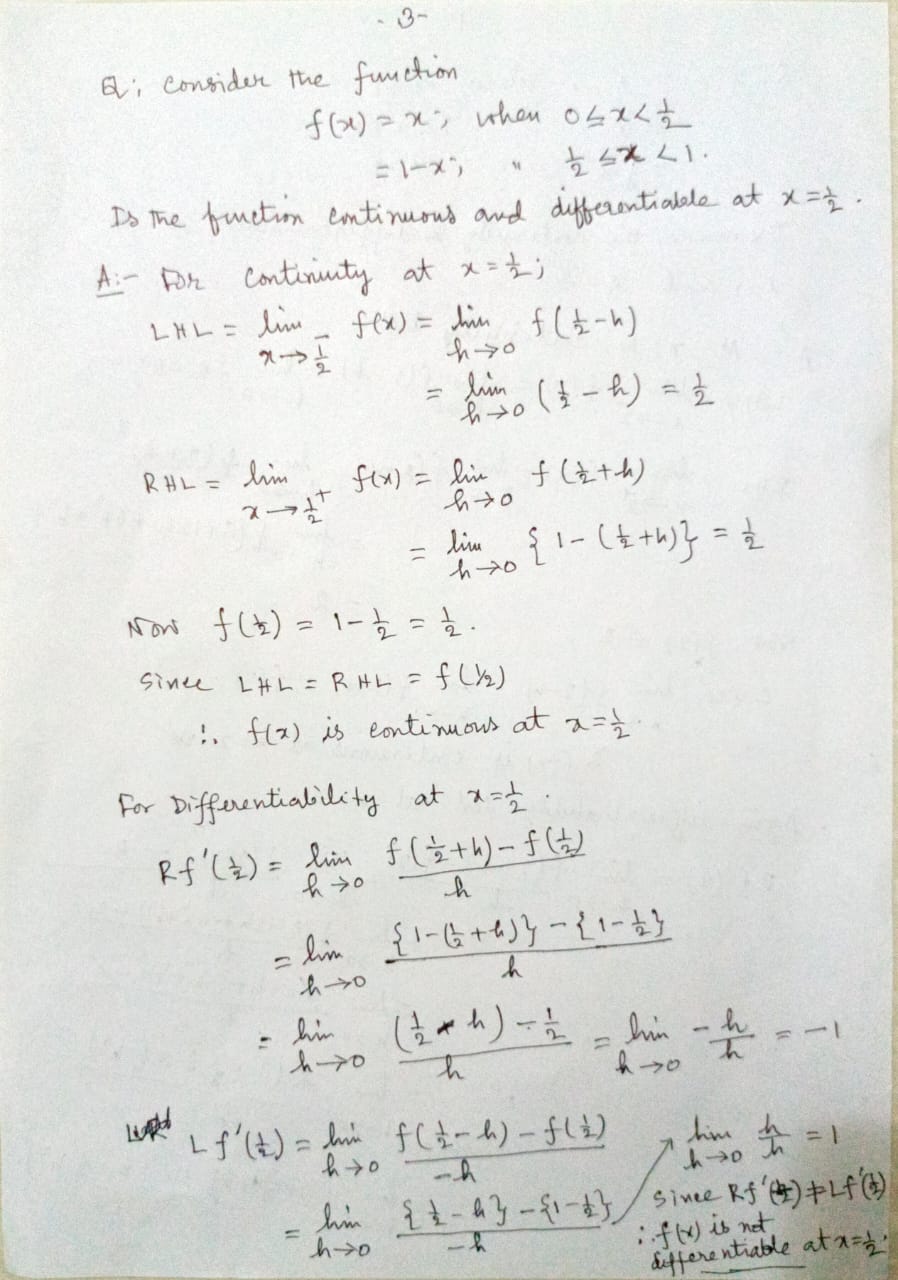 -3-
Q; Consider the function
f(x) = x; when 0 ≤ x < 1/2
= 1-x; " 1/2 ≤ x < 1.
Is the function continuous and differentiable at x = 1/2.
A:- For Continuity at x = 1/2;
LHL = lim x→1/2⁻ f(x) = lim h→0 f(1/2-h)
= lim h→0 (1/2 - h) = 1/2
RHL = lim x→1/2⁺ f(x) = lim h→0 f(1/2+h)
= lim h→0 {1-(1/2+h)} = 1/2
Now f(1/2) = 1-1/2 = 1/2.
Since LHL = RHL = f(1/2)
∴ f(x) is continuous at x=1/2.
For Differentiability at x=1/2.
Rf'(1/2) = lim h→0 (f(1/2+h) - f(1/2))/h
= lim h→0 ({1-(1/2+h)} - {1-1/2})/h
= lim h→0 ((1/2 - h) - 1/2)/h = lim h→0 -h/h = -1
Lf'(1/2) = lim h→0 (f(1/2-h) - f(1/2))/-h
= lim h→0 ({1/2-h} - {1-1/2})/-h
lim h→0 h/h = 1
Since Rf'(1/2) ≠ Lf'(1/2)
∴ f(x) is not
differentiable at x=1/2.